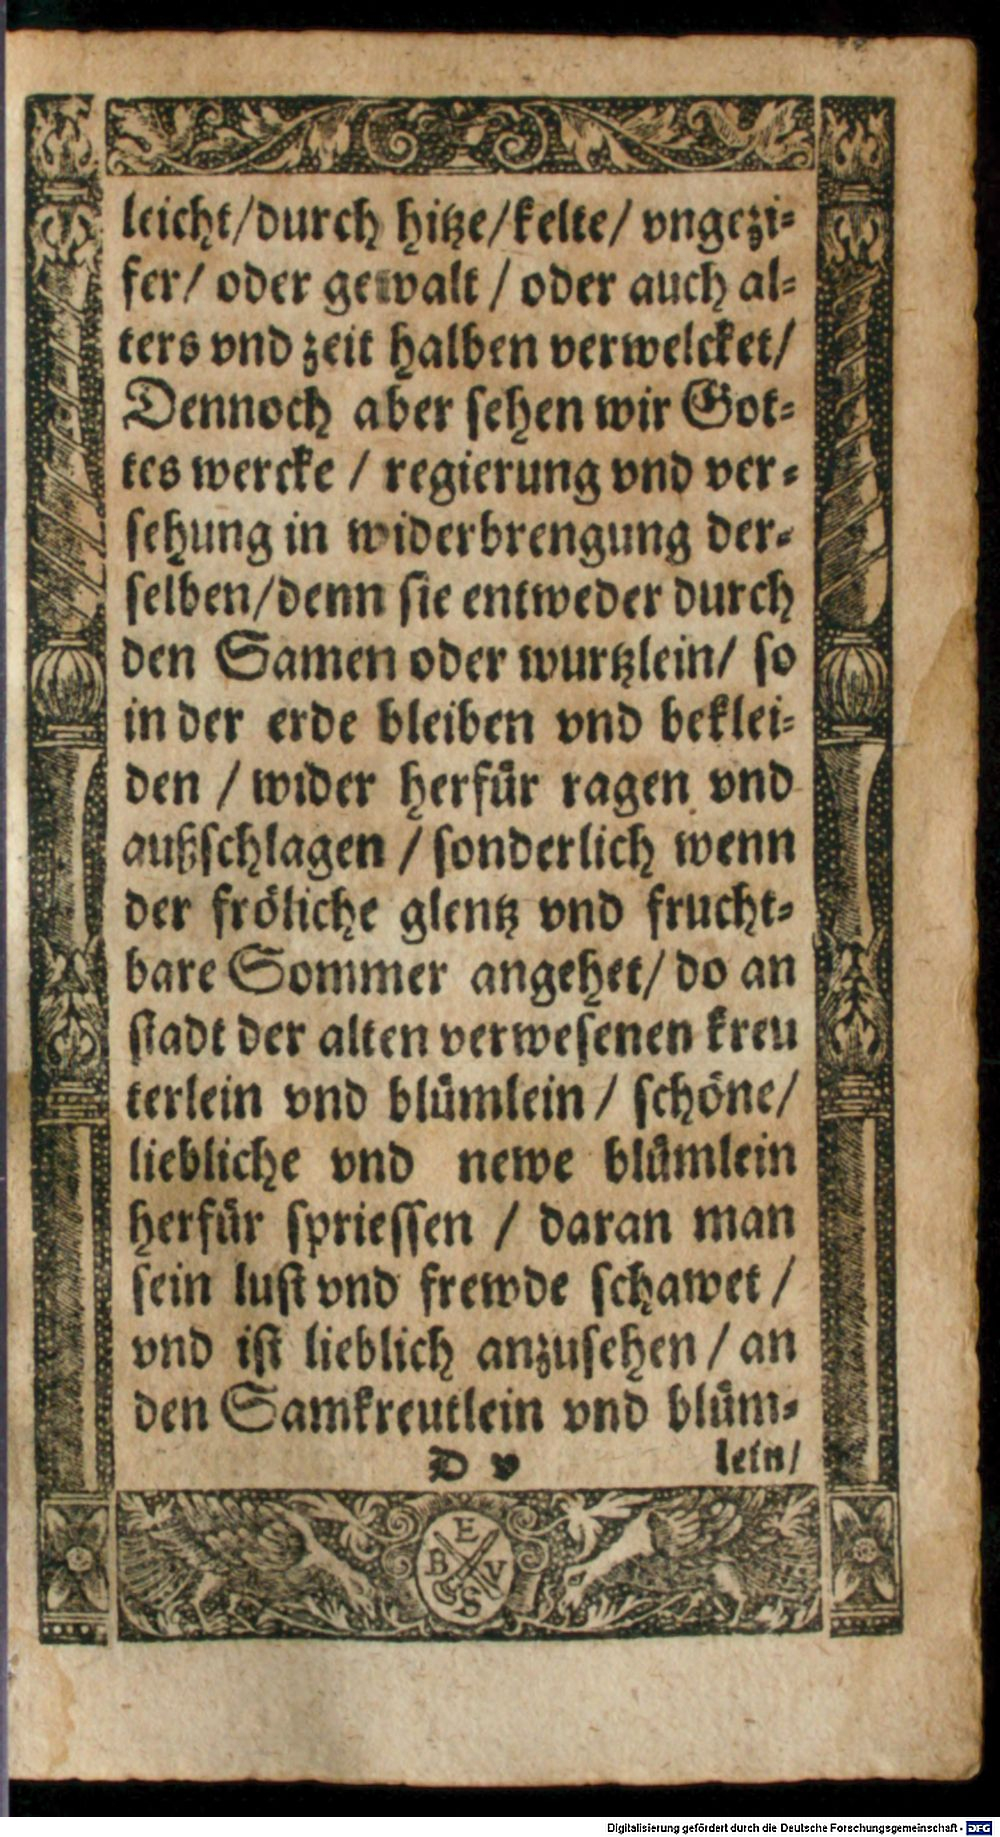 leicht/durch hitze/kelte/ vngezi-
fer/ oder gewalt / oder auch al-
ters vnd zeit halben verwelcket/
Dennoch aber sehen wir Got-
tes wercke / regierung vnd ver-
sehung in widerbrengung der-
selben/denn sie entweder durch
den Samen oder wurtzlein/ so
in der erde bleiben vnd beklei-
den / wider herfuͤr ragen vnd
außschlagen / sonderlich wenn
der froͤliche glentz vnd frucht-
bare Sommer angehet/ do an
stadt der alten verwesenen kreu
terlein vnd bluͤmlein / schoͤne/
liebliche vnd newe bluͤmlein
herfuͤr spriessen / daran man
sein lust vnd frewde schawet /
vnd ist lieblich anzusehen / an
den Samkreutlein vnd bluͤm-
D v lein/
E
B V
S
Digitalisierung gefördert durch die Deutsche Forschungsgemeinschaft - DFG